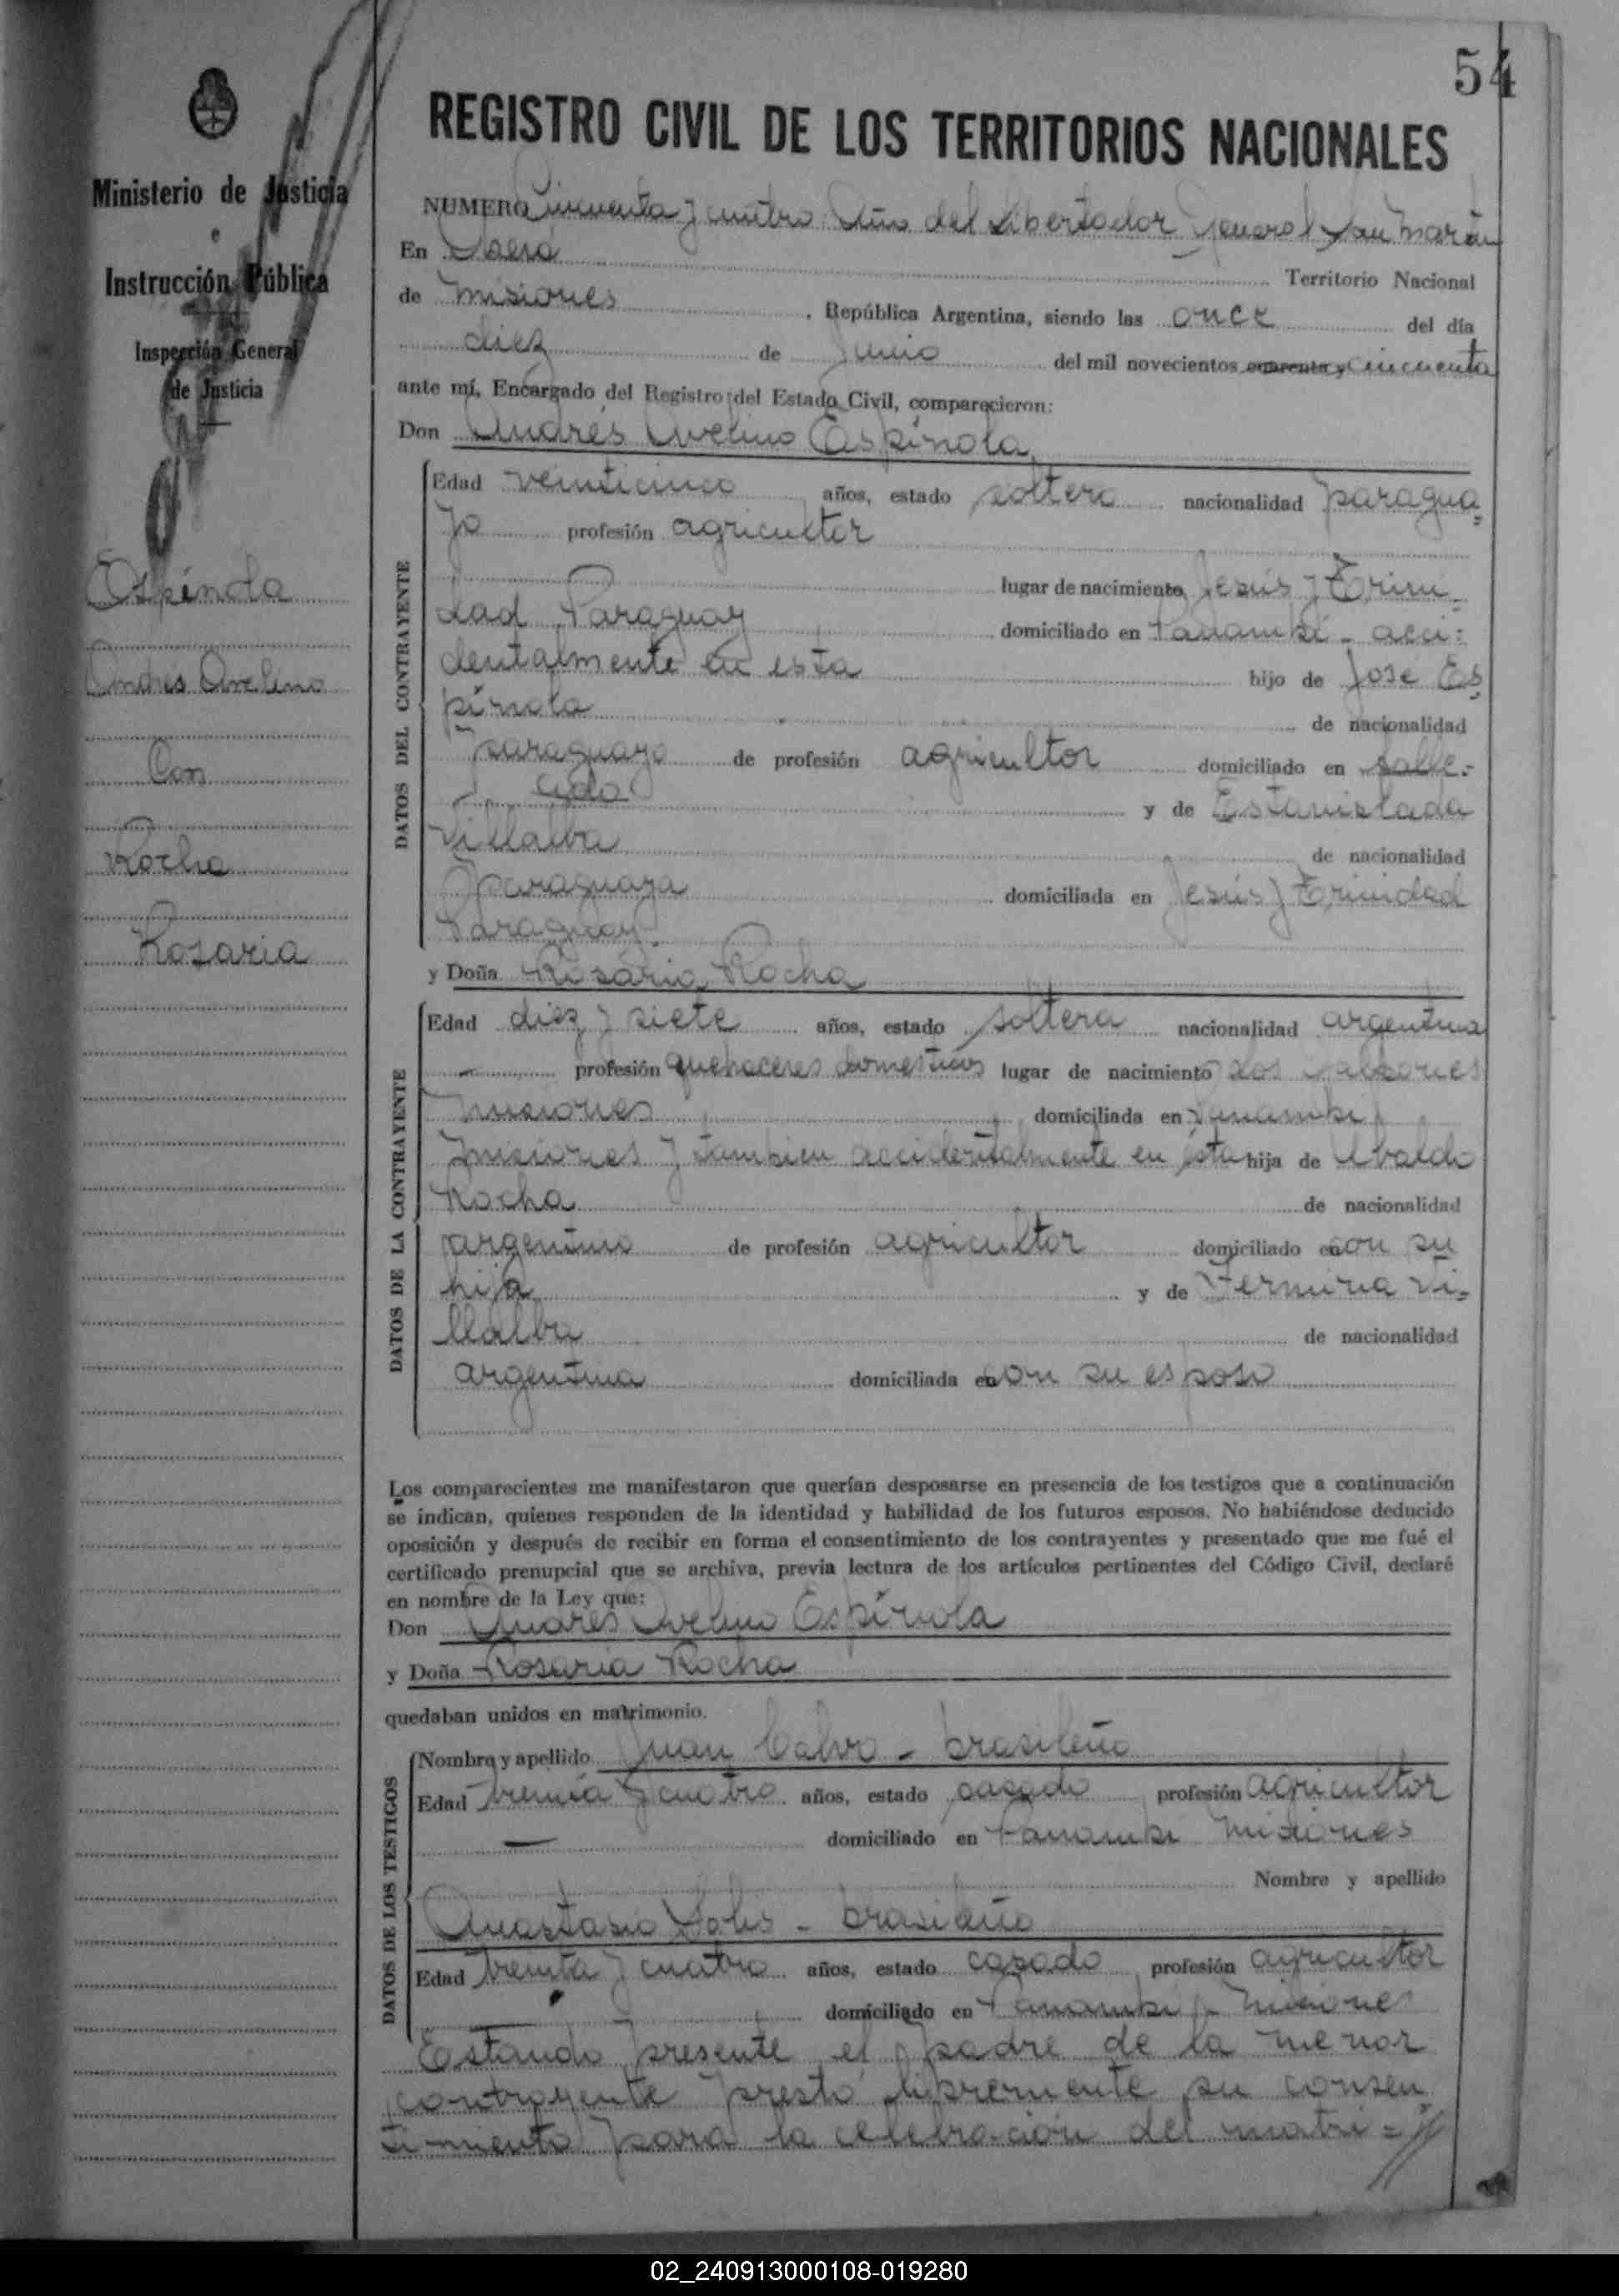 54
Ministerio de Justicia
e
Instrucción Pública
Inspección General
de Justicia
Espínola
Andrés Avelino
Con
Rocha
Rosaria
REGISTRO CIVIL DE LOS TERRITORIOS NACIONALES
NUMERO Cincuenta y cuatro Año del Libertador General San Martín
En Oberá Territorio Nacional
de Misiones, República Argentina, siendo las once del día
diez de Junio del mil novecientos cuarenta y cincuenta
ante mí, Encargado del Registro del Estado Civil, comparecieron:
Don Andrés Avelino Espínola
DATOS DEL CONTRAYENTE
Edad veinticinco años, estado soltero nacionalidad paragua=
yo profesión agricultor
lugar de nacimiento Jesús y Trini=
dad Paraguay domiciliado en Panambí - acci=
dentalmente en esta hijo de José Es=
pínola de nacionalidad
paraguayo de profesión agricultor domiciliado en falle=
cido y de Estanislada
Villalba de nacionalidad
paraguaya domiciliada en Jesús y Trinidad
Paraguay.
y Doña Rosaria Rocha
DATOS DE LA CONTRAYENTE
Edad diez y siete años, estado soltera nacionalidad argentina
profesión quehaceres domesticos lugar de nacimiento Los
Misiones domiciliada en Panambí
Misiones y tambien accidentalmente en ésta hija de Ubaldo
Rocha de nacionalidad
argentino de profesión agricultor domiciliado en con su
hija y de Fermina Vi=
llalba de nacionalidad
argentina domiciliada en con su esposo
Los comparecientes me manifestaron que querían desposarse en presencia de los testigos que a continuación
se indican, quienes responden de la identidad y habilidad de los futuros esposos. No habiéndose deducido
oposición y después de recibir en forma el consentimiento de los contrayentes y presentado que me fué el
certificado prenupcial que se archiva, previa lectura de los artículos pertinentes del Código Civil, declaré
en nombre de la Ley que:
Don Andrés Avelino Espínola
y Doña Rosaria Rocha
quedaban unidos en matrimonio.
DATOS DE LOS TESTIGOS
Nombre y apellido Juan Calvo - brasileño
Edad treinta y cuatro años, estado casado profesión agricultor
— domiciliado en Panambí Misiones
Nombre y apellido
Anastasio - brasileño
Edad treinta y cuatro años, estado casado profesión agricultor
domiciliado en Panambí - Misiones
Estando presente el padre de la menor
contrayente prestó libremente su consen
timiento para la celebración del matri=//
02_240913000108-019280